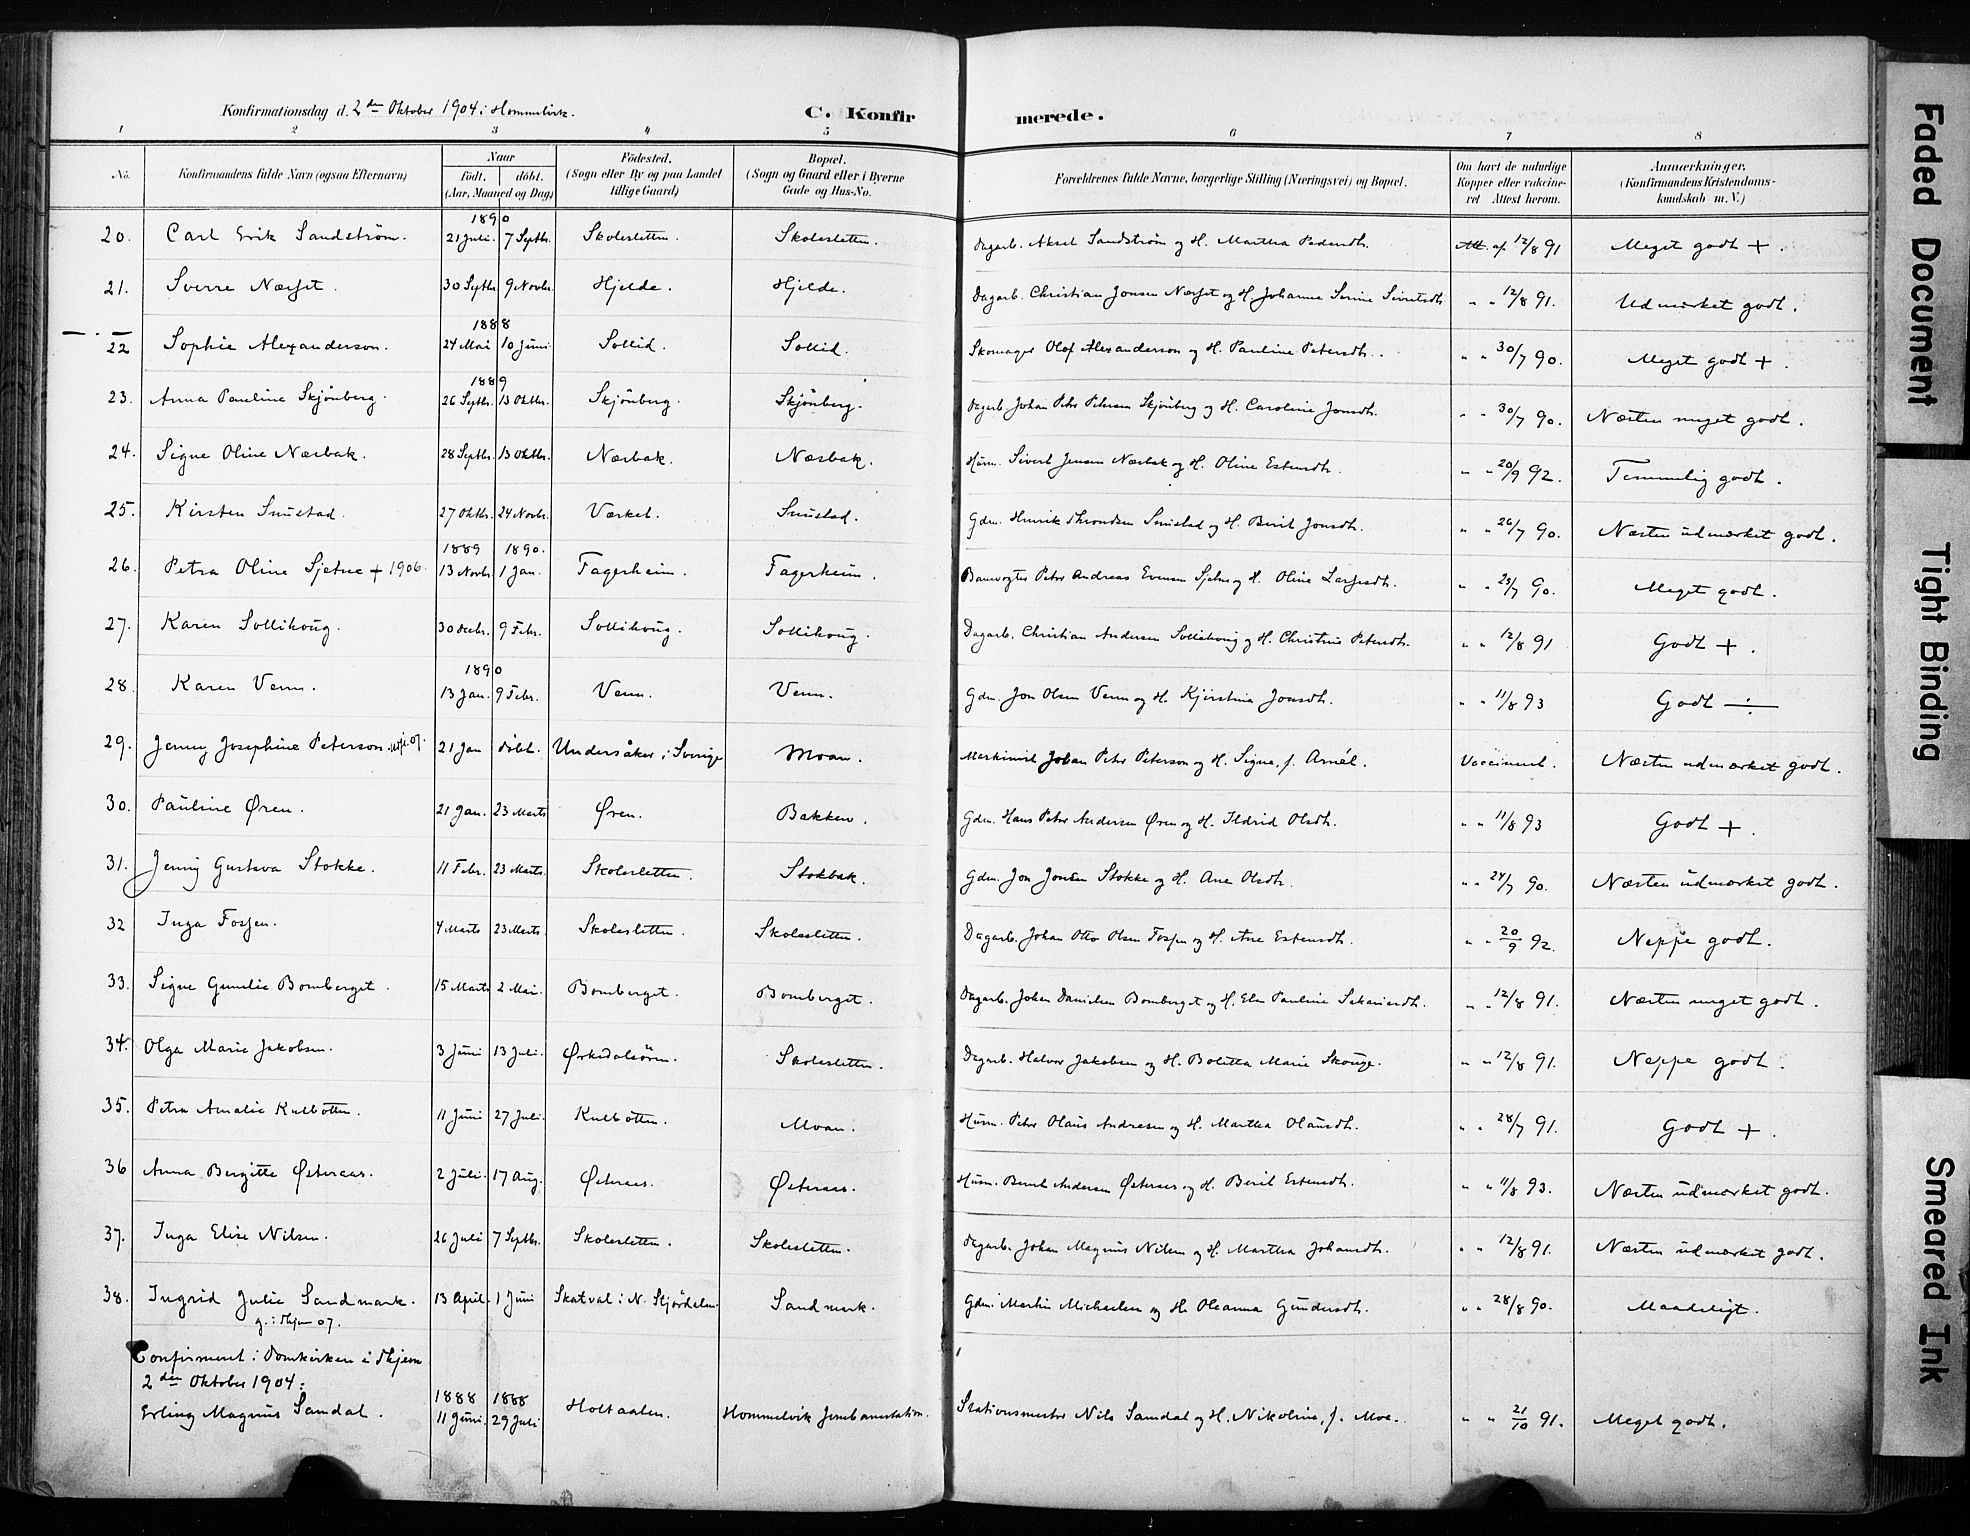 Konfirmationsdag d. 2den Oktober 1904 i Hommelvik.
C. Konfirmerede.
1 2 3 4 5 6 7 8
No. Konfirmandens fulde Navn (ogsaa Efternavn) Naar født. døbt. (Aar, Maaned og Dag) Fødested. (Sogn eller By og paa Landet tillige Gaard) Bopæl. (Sogn og Gaard eller i Byerne Gade og Hus-No. Forældrenes fulde Navne, borgerlige Stilling (Næringsvei) og Bopæl. Om havt de naturlige Kopper eller vaccineret Attest herom. Anmærkninger. (Konfirmandens Kristendomskundskab m. V.)
1890
20. Carl Erik Sandstrøm. 21 Juli. 7 Septbr. Skolesletten. Skolesletten. Dagarb. Aksel Sandstrøm og H. Martha Pedersdt. Att. af 12/8 91 Meget godt + .
21. Sverre Næsset. 30 Septbr. 9 Novbr. Hjelde. Hjelde. Dagarb. Christian Jonsen Næsset og H. Johanna Serine Sivertsdt. " " 12/8 91. Udmærket godt.
1888
22 Sophie Alexanderson. 24 Mai 10 Juni Sollid. Sollid. Skomager Olof Alexanderson og H. Pauline Petersdt. " " 30/7 90. Meget godt + .
1889
23. Anna Pauline Skjönberg. 26 Septbr. 13 Oktbr. Skjönberg. Skjönberg. Dagarb. Johan Peter Petersen Skjönberg og H. Caroline Jonsdt. " " 30/7 90. Næsten meget godt.
24. Signe Oline Næsbak. 28 Septbr. 13 Oktbr. Næsbak. Næsbak. Husm. Sivert Jensen Næsbak og H. Oline Estensdt. " " 20/9 92. Temmelig godt.
25. Kirsten Snustad. 27 Oktbr. 24 Novbr. Værket. Snustad. Gdm. Henrik Throndsen Snustad og H. Berit Jonsdt. " " 26/7 90. Næsten udmærket godt.
1889 1890.
26. Petra Oline Sjetne + 1906. 13 Novbr. 1 Jan. Fagerheim. Fagerheim. Banevogter Peter Andreas Evensen Sjetne og H. Oline Larsesdt. " " 25/7 90. Meget godt.
27. Karen Sollihoug. 30 Decbr. 9 Febr. Sollihoug. Sollihoug. Dagarb. Christian Andersen Sollihoug og H. Christine Petersdt. " " 12/8 91 Godt + .
1890
28. Karen Venn. 13 Jan. 9 Febr. Venn. Venn. Gdm. Jon Olsen Venn og H. Kjerstina Jonsdt. " " 11/8 93 Godt ÷
29. Jenny Josephine Peterson. 21 Jan døbt. Undersåker i Sverige Moan. Maskinist Johan Peter Peterson og H. Signe, f. Arnél. Vaccineret. Næsten udmærket godt.
30. Pauline Øren. 21 Jan. 23 Marts Øren. Bakken. Gdm. Hans Peter Andersen Øren og H. Ildrid Olsdt. " " 11/8 93 Godt + .
31. Jenny Gustava Stokke. 11 Febr. 23 Marts Skolesletten. Stokbak. Gdm. Jon Jonsen Stokke og H. Ane Olsdt. " " 24/7 90. Næsten udmærket godt.
32 Inga Fossen. 4 Marts 23 Marts. Skolesletten. Skolesletten. Dagarb. Johan Otto Olsen Fossen og H. Ane Estensdt. " " 20/9 92. Neppe godt.
33. Signe Gunelie Bomberget. 15 Marts 2 Mai. Bomberget. Bomberget. Dagarb. Johan Danielsen Bomberget og H. Elen Pauline Sakariasdt. " " 12/8 91. Næsten meget godt.
34. Olga Marie Jakobsen. 3 Juni 13 Juli. Ørkedalsören. Skolesletten. Dagarb. Halvor Jakobsen og H. Boletta Marie Skouge. " " 12/8 91. Neppe godt.
35. Petra Amalie Kulbotten. 11 Juni 27 Juli. Kulbotten. Moan. Husm. Peter Olaus Andresen og H. Martha Olausdt. " " 28/7 91. Godt + .
36 Anna Bergitte Østeraas. 2 Juli. 17 Aug. Østeraas. Østeraas. Husm. Bernt Andersen Østeraas og H. Berit Estensdt. " " 11/8 93. Næsten udmærket godt.
37. Inga Elise Nilsen. 26 Juli 7 Septbr. Skolesletten. Skolesletten. Dagarb. Johan Magnus Nilsen og H. Martha Johansdt. " " 12/8 91. Næsten udmærket godt.
38. Ingrid Julie Sandmark. 13 April. 1 Juni Skatval i N. Stjørdalen. Sandmark. Gdm. Martin Michaelsen og H. Oleanna Gundersdt. " " 28/8 90. Maadeligt.
g. i Thjem 07.
Confirmeret i Domkirken i Thjem
2den Oktober 1904:
1888 1888
Erling Magnus Samdal. 11 Juni. 29 Juli Holtaalen. Hommelvik Jernbanestation. Stationsmester Nils Samdal og H. Nikoline, f. Moe. " " 21/10 91. Meget godt.
Faded Document
Tight Binding
Smeared Ink